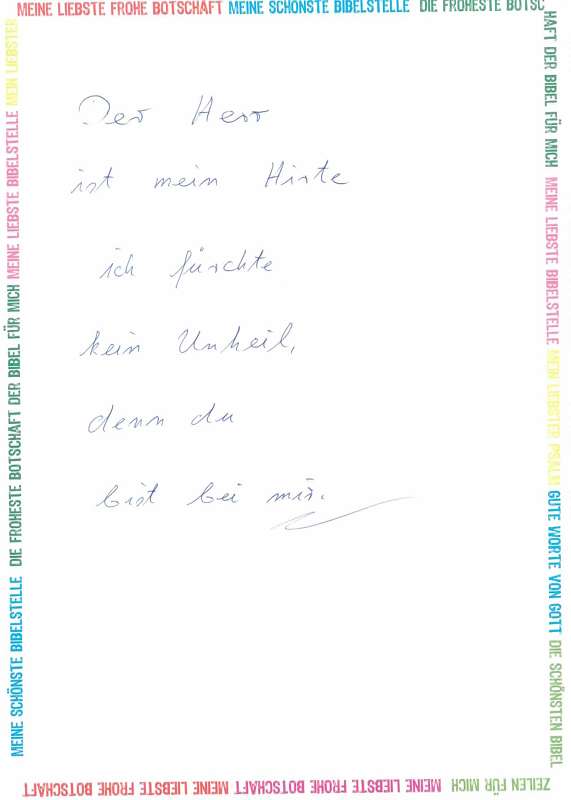 MEINE LIEBSTE FROHE BOTSCHAFT MEINE SCHÖNSTE BIBELSTELLE DIE FROHESTE BOTSC
HAFT DER BIBEL FÜR MICH MEINE LIEBSTE BIBELSTELLE MEIN LIEBSTER PSALM GUTE WORTE VON GOTT DIE SCHÖNSTEN BIBEL
ZEILEN FÜR MICH MEINE LIEBSTE FROHE BOTSCHAFT MEINE LIEBSTE FROHE BOTSCHAFT
MEINE SCHÖNSTE BIBELSTELLE DIE FROHESTE BOTSCHAFT DER BIBEL FÜR MICH MEINE LIEBSTE BIBELSTELLE MEIN LIEBSTER
Der Herr
ist mein Hirte
ich fürchte
kein Unheil,
denn du
bist bei mir.